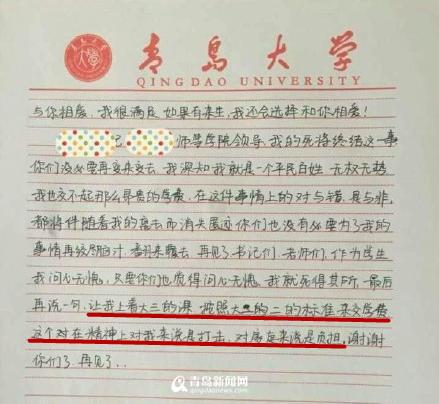 青岛大学
QINGDAO UNIVERSITY
与你相爱，我很满足，如果有来生，我还会选择和你相爱！
记、师学院领导，我的死将终结这一事
你们没必要再变来变去，我深知我就是一个平民百姓，无权无势
我也交不起那么昂贵的学费，在这件事情上的对与错，是与非，
都将伴随着我的离去而消失，你们也没有必要为了我的
事情再绞尽脑汁，翻来覆去，再见了书记们，老师们，作为学生
我问心无愧，只要你们也觉得问心无愧，我就死得其所，最后
再说一句，让我上着大三的课，按照大二的标准来交学费
这个对在精神上对我来说是打击，对家庭来说是负担，谢谢
你们了，再见了...
青岛新闻网